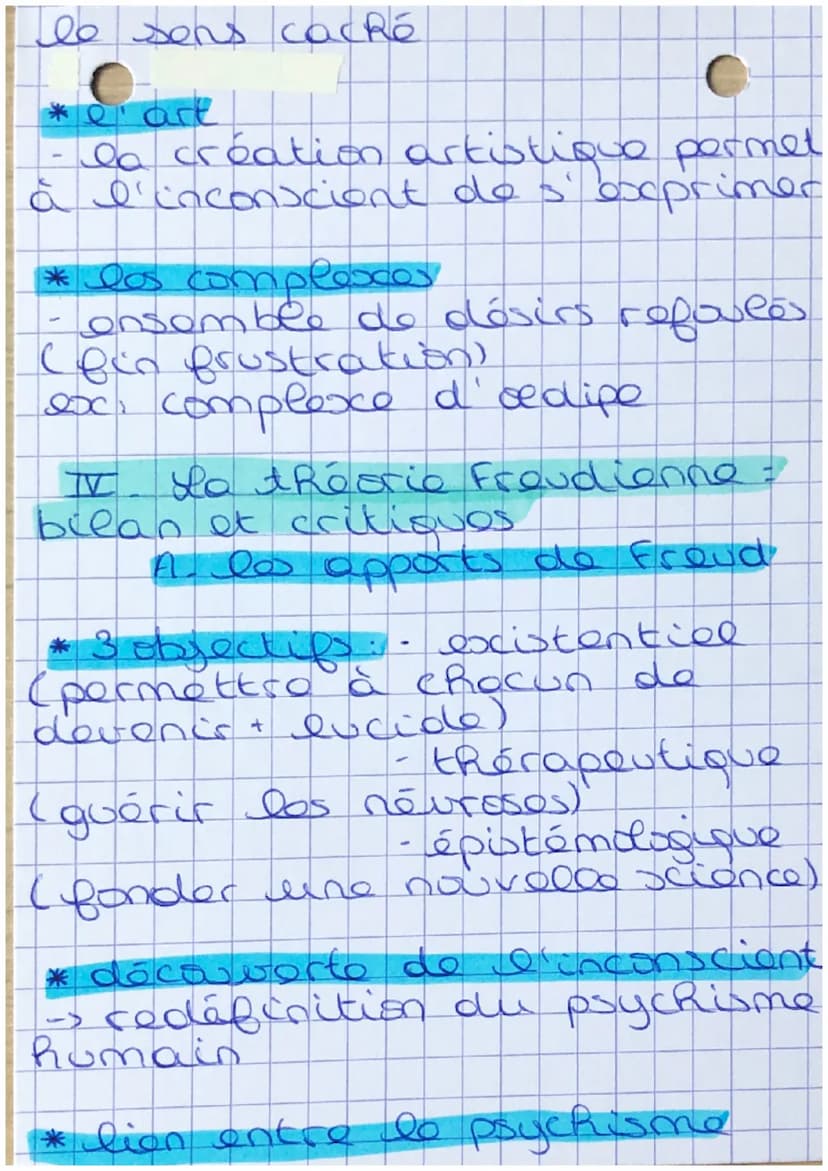 le sens caché
* l'art
- la création artistique permet
à l'inconscient de s'exprimer
* les complexes
- ensemble de désirs refoulés
(fin frustration)
ex: complexe d'œdipe
IV. La théorie Freudienne =
bilan et critiques
A. les apports de Freud
* 3 objectifs: - existentiel
(permettre à chacun de
devenir + lucide)
- thérapeutique
(guérir les névroses)
- épistémologique
(fonder une nouvelle science)
* découverte de l'inconscient
-> redéfinition du psychisme
humain
* lien entre le psychisme